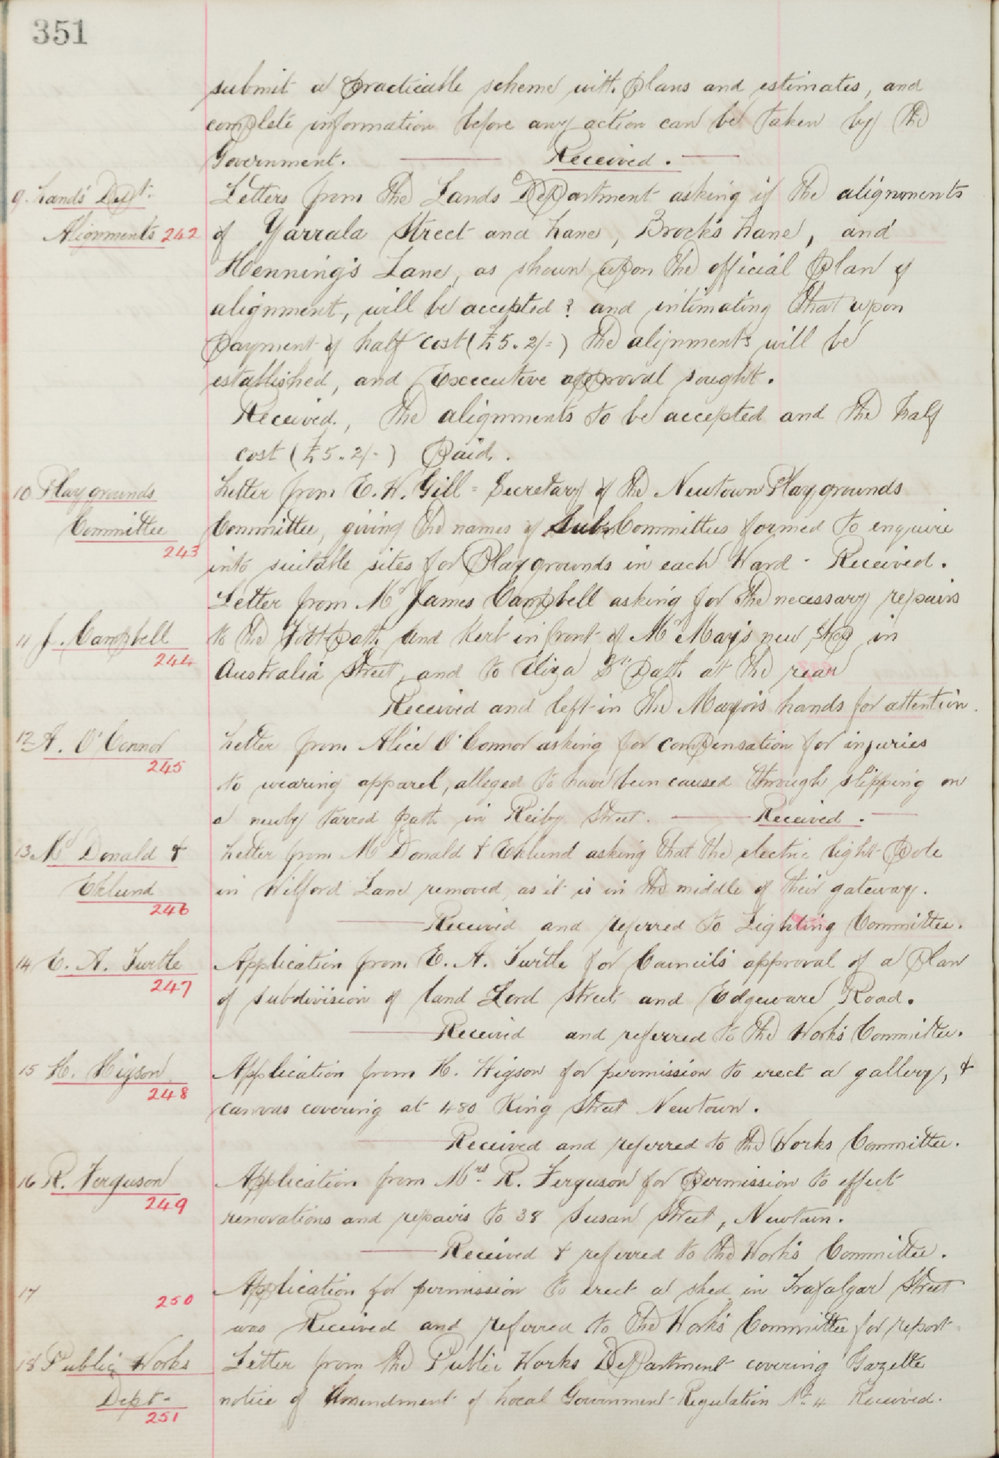 351
submit a practicable scheme with plans and estimates, and
complete information before any action can be taken by the
Government. Received.
9. Lands Dept. Letters from the Lands Department asking if the alignments
Alignments 242 of Yarrala Street and Lane, Brock's Lane, and
Henning's Lane, as shown upon the official plan of
alignment, will be accepted? and intimating that upon
payment of half cost (£5.2/-) the alignments will be
established, and Executive approval sought.
Received, the alignments to be accepted and the half
cost (£5.2/-) Paid.
10 Playgrounds Letter from E. W. Gill - Secretary of the Newtown Playgrounds
Committee Committee, giving the names of Sub Committees formed to enquire
243 into suitable sites for Playgrounds in each Ward - Received.
Letter from Mr James Campbell asking for the necessary repairs
11 J. Campbell to the Footpath and Kerb in front of Mr May's new shop in
244 Australia Street, and to Eliza St Path at the rear
Received and left in the Mayor's hands for attention.
12 A. O'Connor Letter from Alice O'Connor asking for compensation for injuries
245 to wearing apparel, alleged to have been caused through slipping on
a newly tarred path in Reiby Street. Received.
13 Mc Donald & Letter from McDonald & Eklund asking that the electric light pole
Eklund in Wilford Lane removed, as it is in the middle of their gateway.
246 Received and referred to Lighting Committee.
14 E. A. Turtle Application from E. A. Turtle for Council's approval of a plan
247 of subdivision of land Lord Street and Edgeware Road.
Received and referred to the Works Committee.
15 H. Higson Application from H. Higson for permission to erect a gallery, &
248 canvas covering at 480 King Street Newtown.
Received and referred to the Works Committee.
16 R. Ferguson Application from Mrs. R. Ferguson for Permission to effect
249 renovations and repairs to 38 Susan Street, Newtown.
Received & referred to the Works Committee.
17 Application for permission to erect a shed in Trafalgar Street
250 was Received and referred to the Works Committee for report
18 Public Works Letter from the Public Works Department covering Gazette
Dept. notice of Amendment of Local Government Regulation No. 4 Received.
251